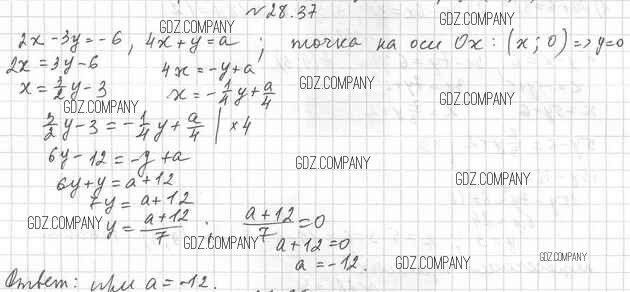 №28.37
2x - 3y = -6, 4x + y = a; точка на оси Ox: (x; 0) => y=0
2x = 3y - 6 4x = -y + a
x = 3/2 y - 3 x = -1/4 y + a/4
3/2 y - 3 = -1/4 y + a/4 | × 4
6y - 12 = -y + a
6y + y = a + 12
7y = a + 12
y = (a + 12)/7 ; (a + 12)/7 = 0
a + 12 = 0
a = -12.
Ответ: при a = -12.
GDZ.COMPANY
GDZ.COMPANY
GDZ.COMPANY
GDZ.COMPANY
GDZ.COMPANY
GDZ.COMPANY
GDZ.COMPANY
GDZ.COMPANY
GDZ.COMPANY
GDZ.COMPANY
GDZ.COMPANY